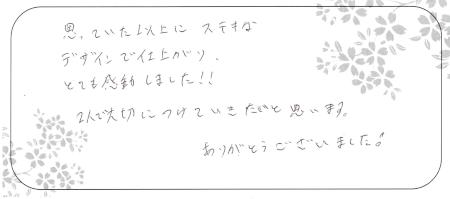 思っていた以上に ステキな
デザインで仕上がり、
とても感動しました!!
2人で大切につけていきたいと思います。
ありがとうございました♂